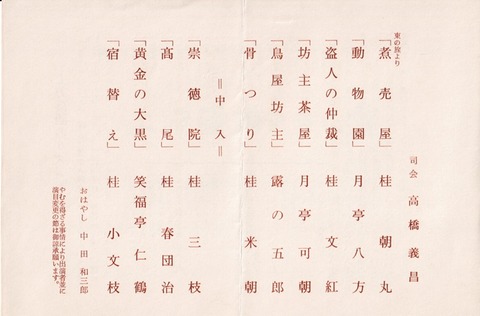 司会 高橋義昌
東の旅より
「煮売屋」桂朝丸
「動物園」月亭八方
「盗人の仲裁」桂文紅
「坊主茶屋」月亭可朝
「鳥屋坊主」露の五郎
「骨つり」桂米朝
＝中入＝
「崇徳院」桂三枝
「高尾」桂春団治
「黄金の大黒」笑福亭仁鶴
「宿替え」桂小文枝
おはやし 中田和三郎
やむを得ざる事情により出演者並に
演目変更の節は御諒承願います。